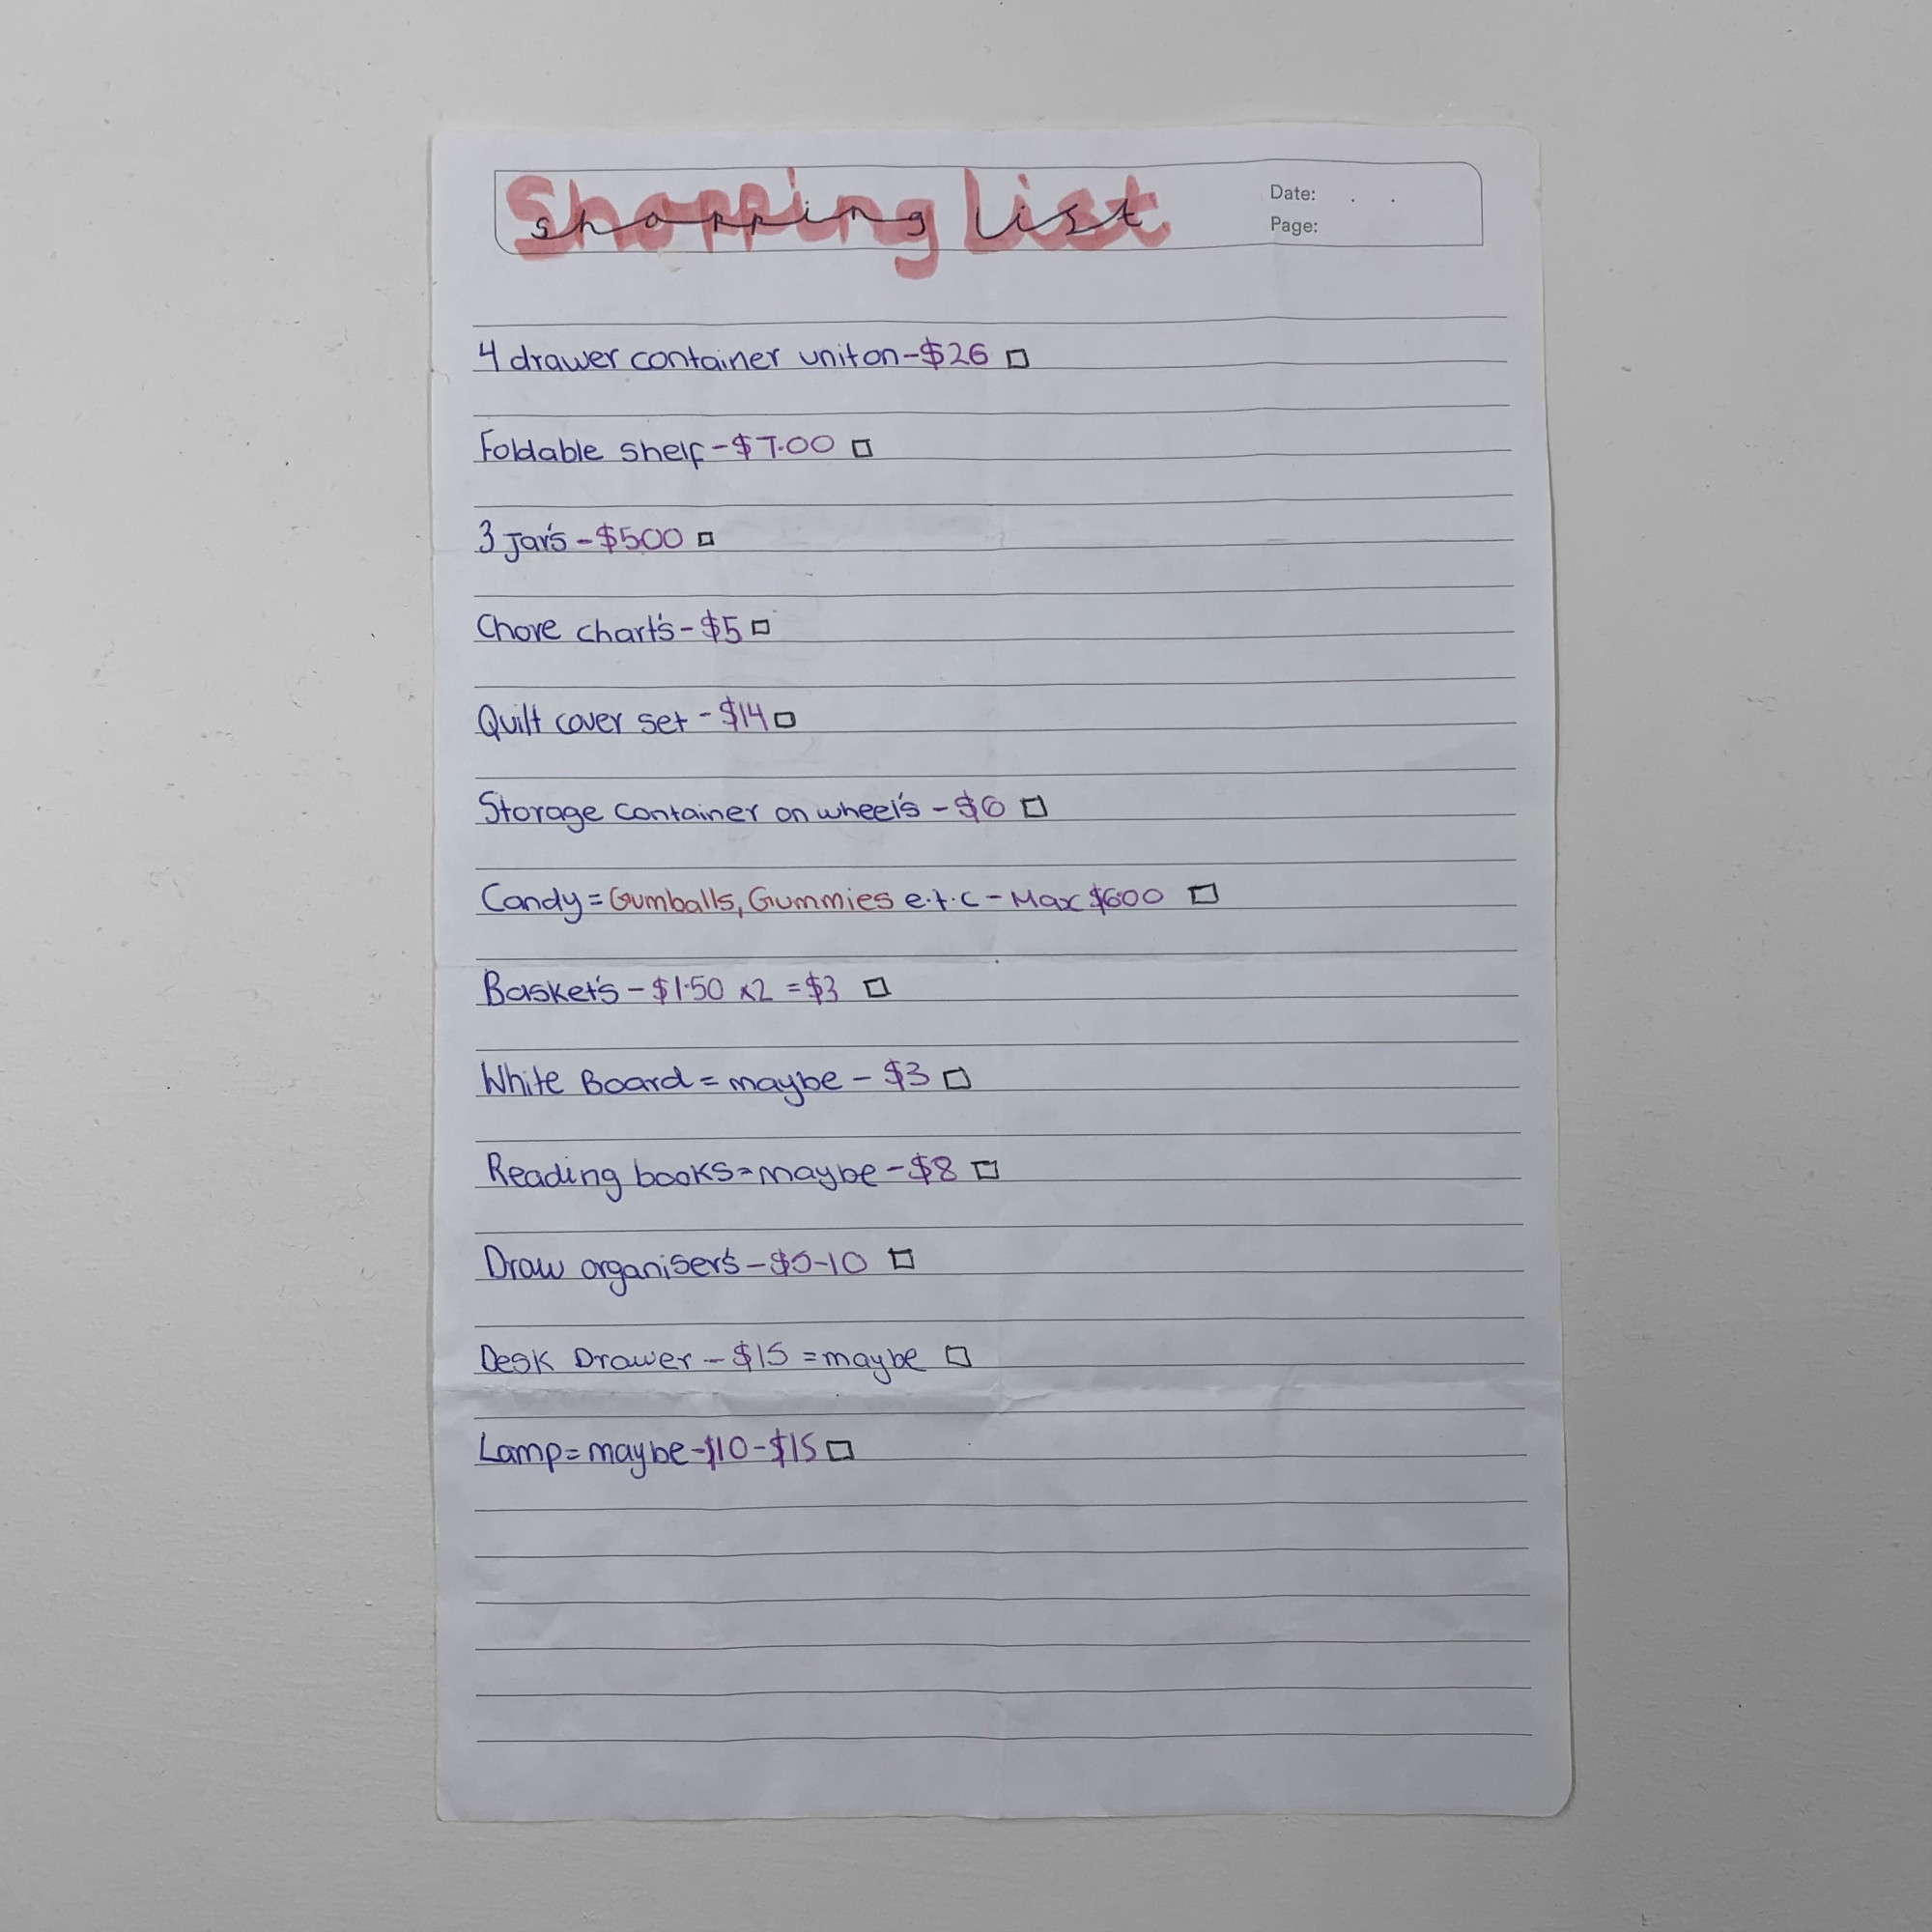 Shopping list
Date: . .
Page:
4 drawer container uniton-$26
Foldable shelf-$7.00
3 Jar's-$500
Chore chart's-$5
Quilt cover set-$14
Storage container on wheel's-$6
Candy=Gumballs, Gummies e.t.c-Max $600
Basket's-$1.50 x2 =$3
White Board=maybe-$3
Reading books=maybe-$8
Draw organiser's-$5-10
Desk Drawer-$15 =maybe
Lamp=maybe-$10-$15